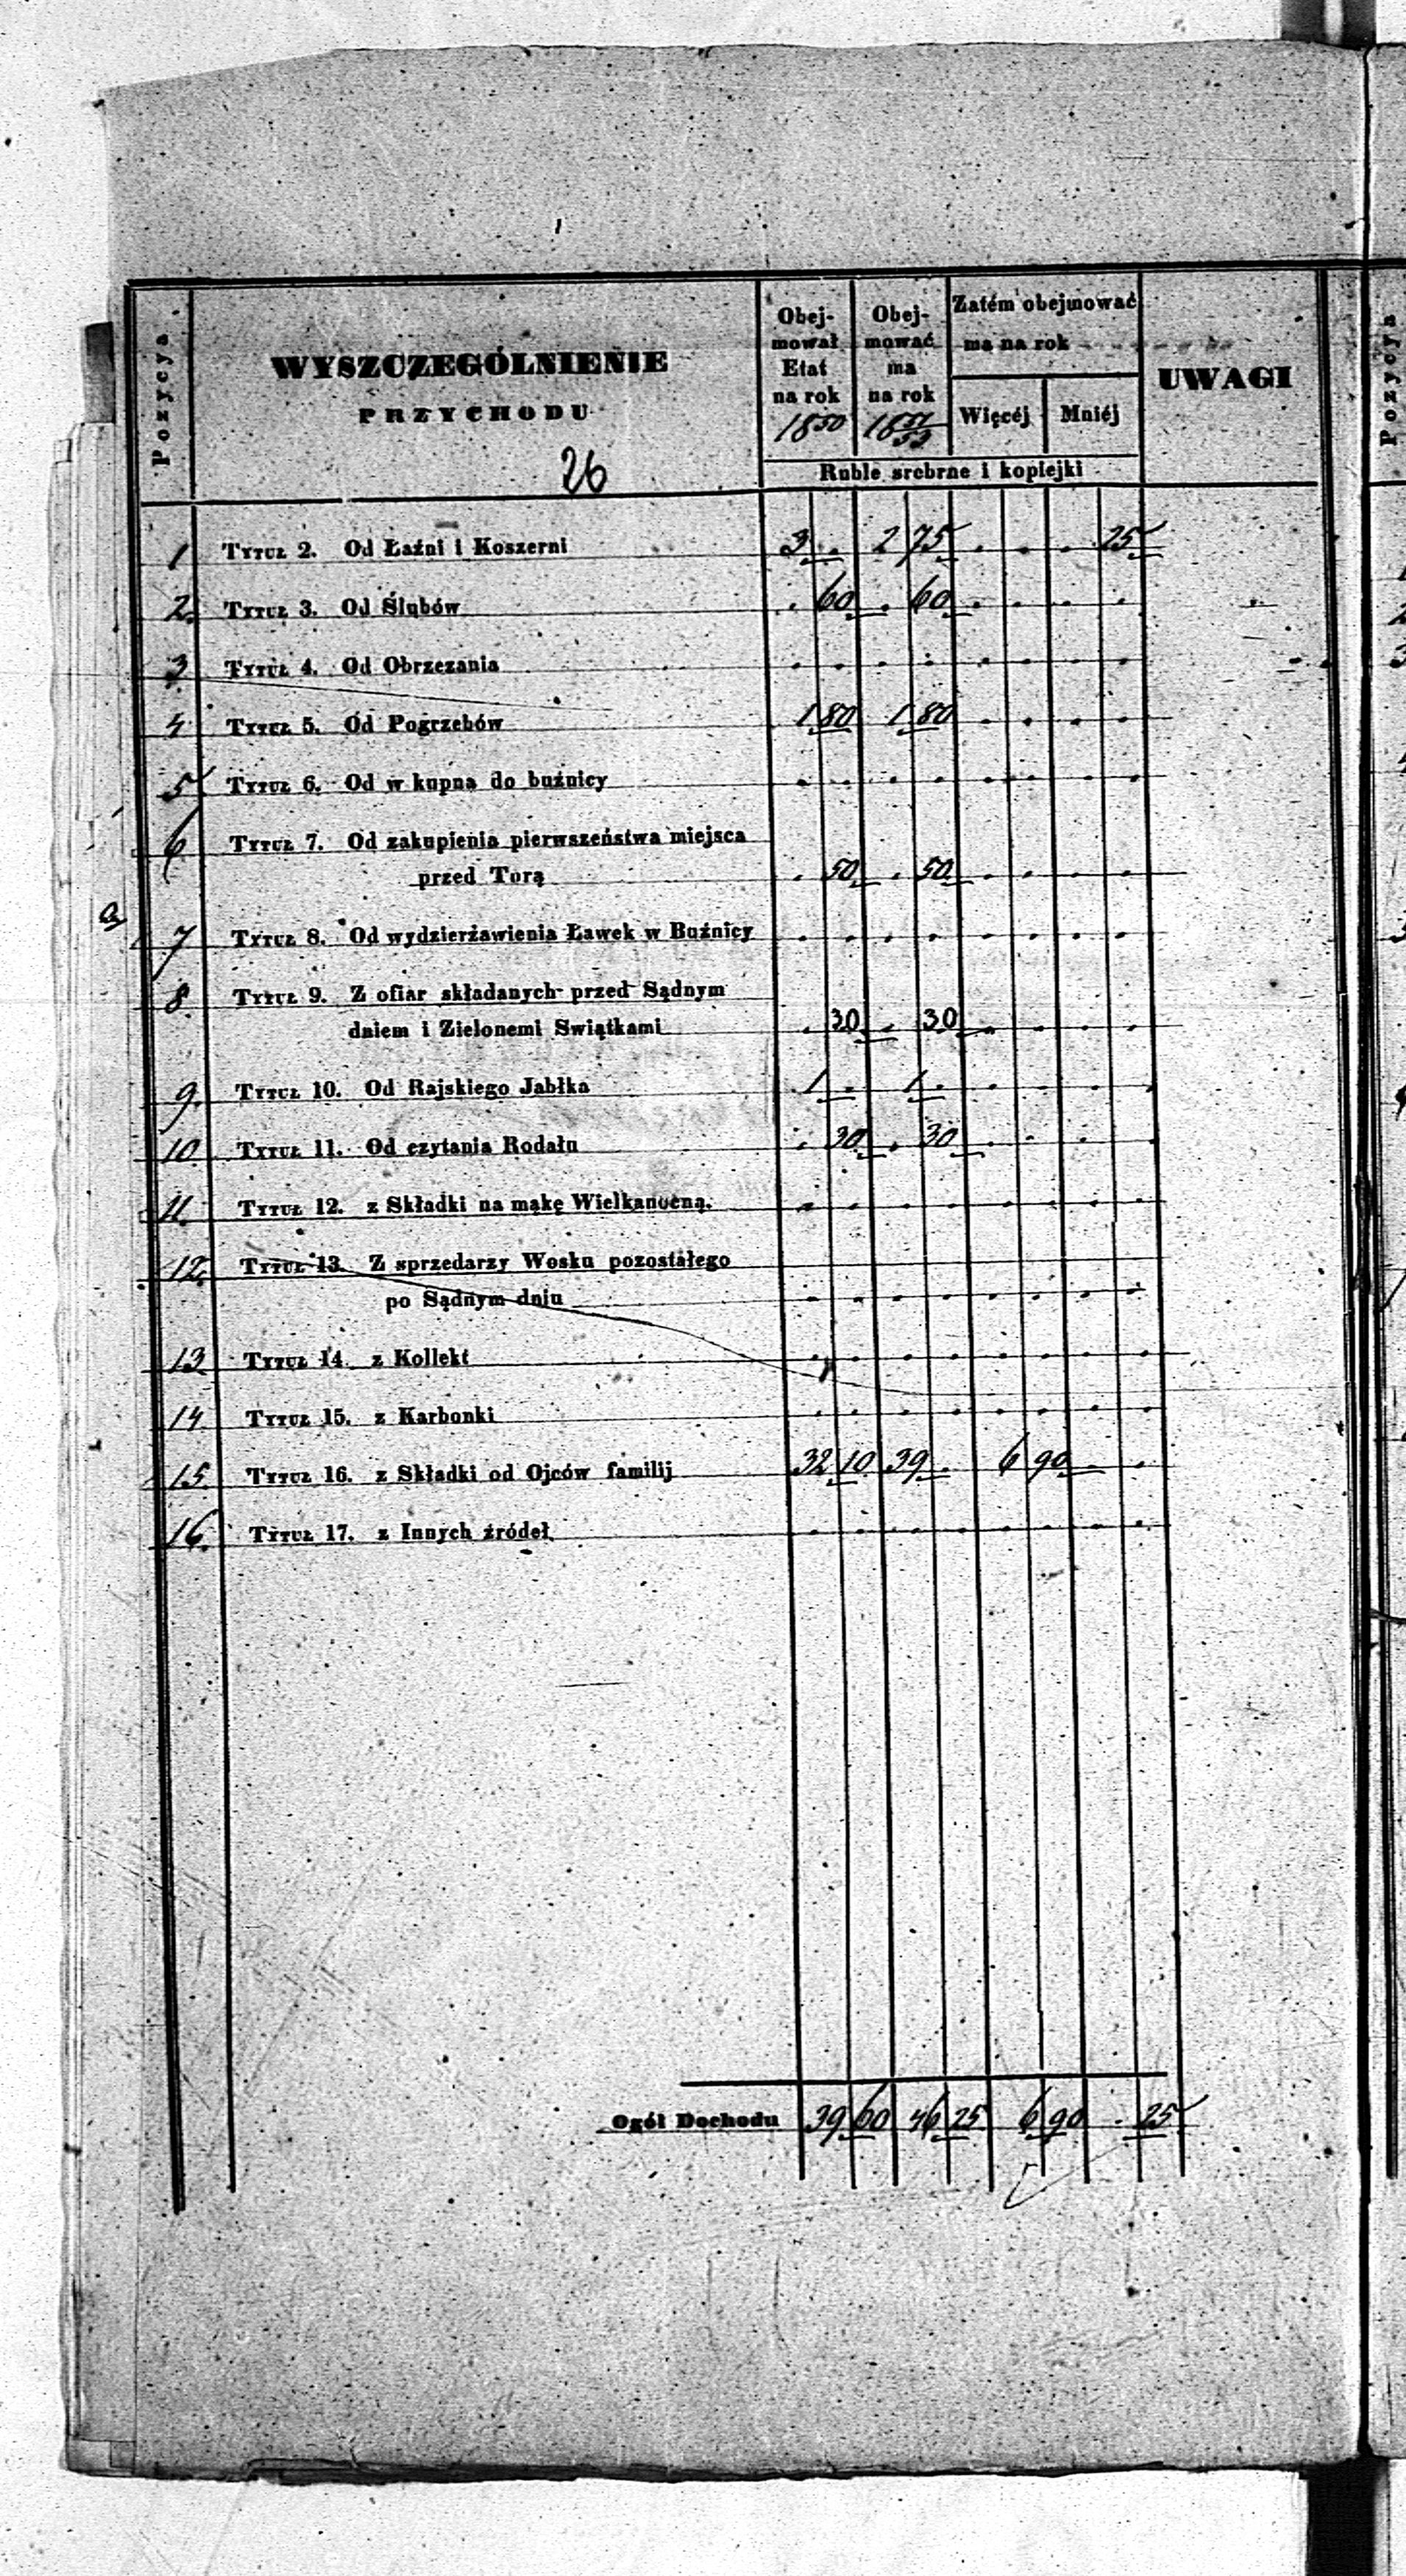 Pozycya
WYSZCZEGÓLNIENIE
PRZYCHODU
26
Obej-
mował
Etat
na rok
1850
Obej-
mować
ma
na rok
18 51/53
Zatém obejmować
ma na rok
Więcéj Mniéj
Ruble srebrne i kopiejki
UWAGI
1 Tytuł 2. Od Łaźni i Koszerni 3 . 2 75 . . . 25
2. Tytuł 3. Od Ślubów . 60 . 60 . . . .
3. Tytuł 4. Od Obrzezania . . . . . . . .
4 Tytuł 5. Od Pogrzebów 1 80 1 80 . . . .
5 Tytuł 6. Od w kupna do buźnicy . . . . . . . .
6 Tytuł 7. Od zakupienia pierwszeństwa miejsca
przed Torą . 50 . 50 . . . .
7 Tytuł 8. Od wydzierżawienia Ławek w Buźnicy . . . . . . . .
8. Tytuł 9. Z ofiar składanych przed Sądnym
dniem i Zielonemi Swiątkami . 30 . 30 . . . .
9. Tytuł 10. Od Rajskiego Jabłka 1 . 1 . . . . .
10. Tytuł 11. Od czytania Rodału . 30 . 30 . . . .
11. Tytuł 12. z Składki na mąkę Wielkanocną. . . . . . . . .
12. Tytuł 13. Z sprzedarzy Wosku pozostałego
po Sądnym dniu . . . . . . . .
13 Tytuł 14. z Kollekt . . . . . . . .
14. Tytuł 15. z Karbonki . . . . . . . .
15. Tytuł 16. z Składki od Ojców familij 32 10 39 . 6 90 . .
16. Tytuł 17. z Innych źródeł . . . . . . . .
Ogół Dochodu 39 60 46 25 6 90 . 25
Pozycya